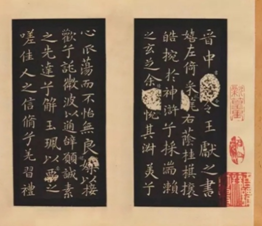 晉中令王獻之書
嬉左倚采右蔭桂旗攘
皓腕於神滸兮採湍瀨
之玄芝余悅其淑美兮
心振蕩而不怡無良媒以接
歡兮託微波以通辭願誠素
之先達兮解玉珮以要之
嗟佳人之信脩兮羌習禮